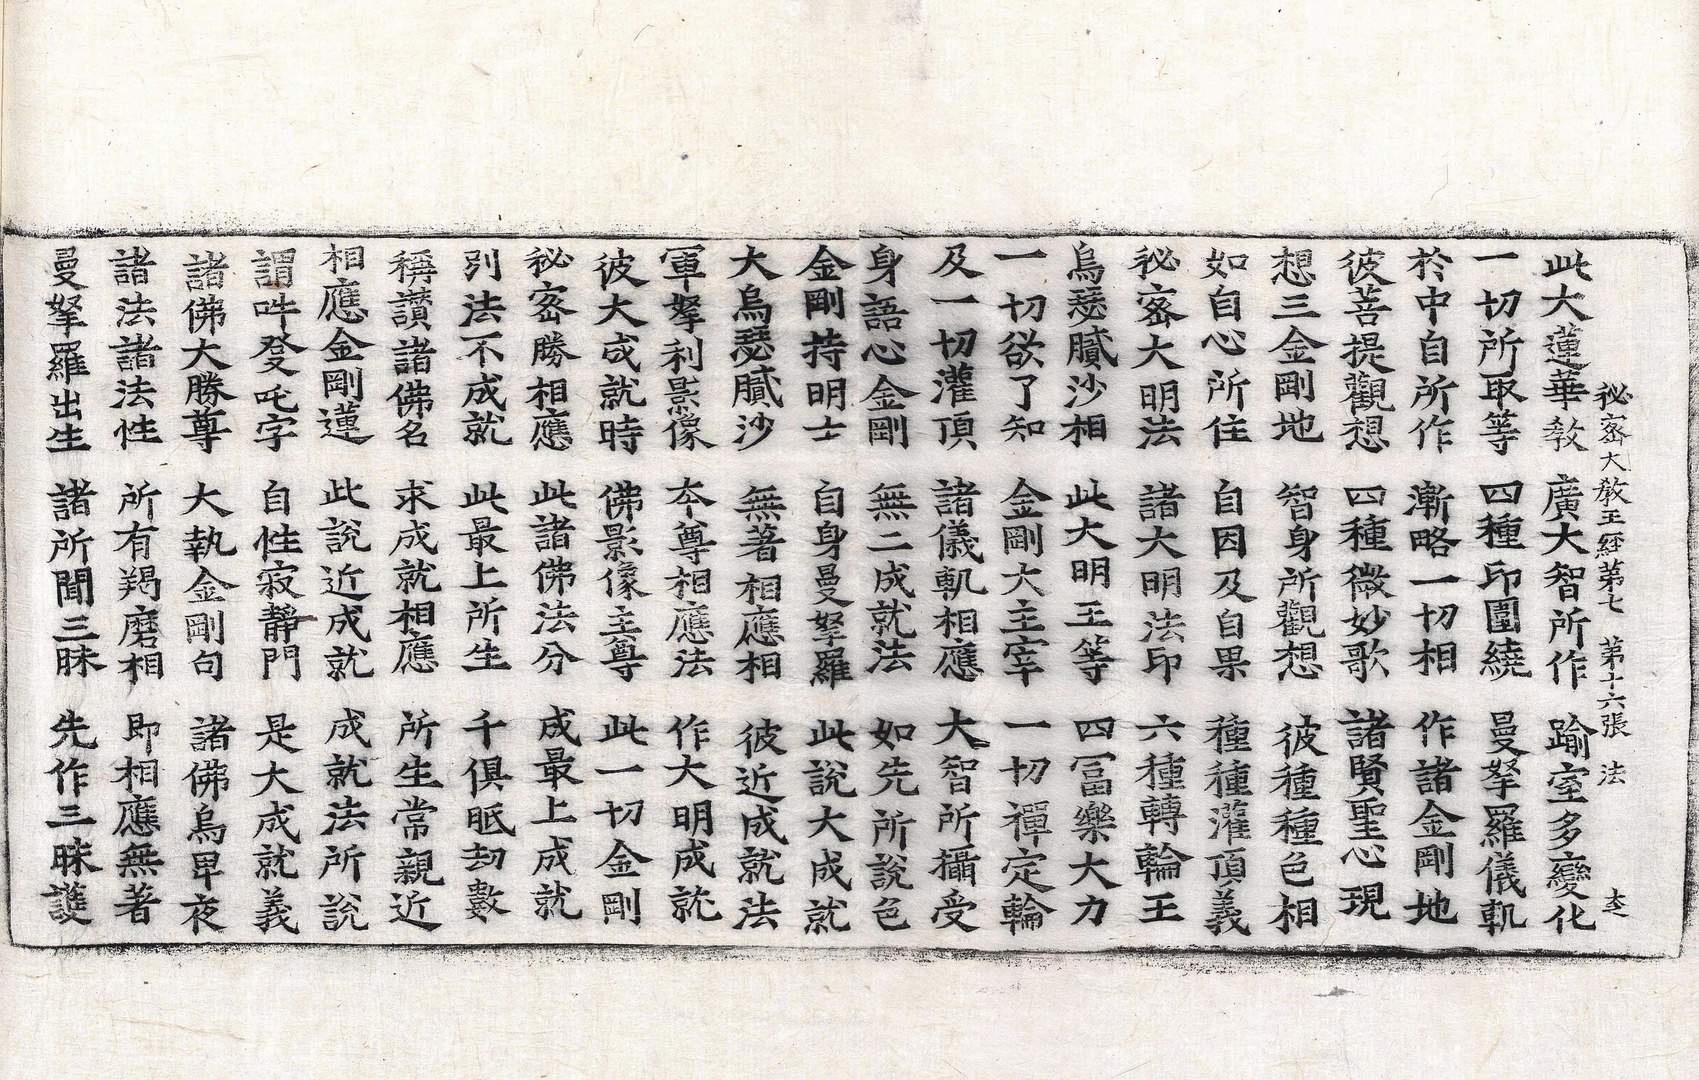 秘密大教王經第七　第十六張　法
此大蓮華教　廣大智所作　踰室多變化
一切所取等　四種印圍繞　曼拏羅儀軌
於中自所作　漸略一切相　作諸金剛地
彼菩提觀想　四種微妙歌　諸賢聖心現
想三金剛地　智身所觀想　彼種種色相
如自心所住　自因及自果　種種灌頂義
秘密大明法　諸大明法印　六種轉輪王
烏瑟膩沙相　此大明王等　四冨樂大力
一切欲了知　金剛大主宰　一切禪定輪
及一切灌頂　諸儀軌相應　大智所攝受
身語心金剛　無二成就法　如先所說色
金剛持明士　自身曼拏羅　此說大成就
大烏瑟膩沙　無著相應相　彼近成就法
軍拏利影像　本尊相應法　作大明成就
彼大成就時　佛影像主尊　此一切金剛
秘密勝相應　此諸佛法分　成最上成就
別法不成就　此最上所生　千俱胝劫數
稱讃諸佛名　求成就相應　所生常親近
相應金剛蓮　此說近成就　成就法所說
謂吽癹吒字　自性寂靜門　是大成就義
諸佛大勝尊　大執金剛句　諸佛烏波夜
諸法諸法性　所有羯磨相　即相應無著
曼拏羅出生　諸所聞三昧　先作三昧護